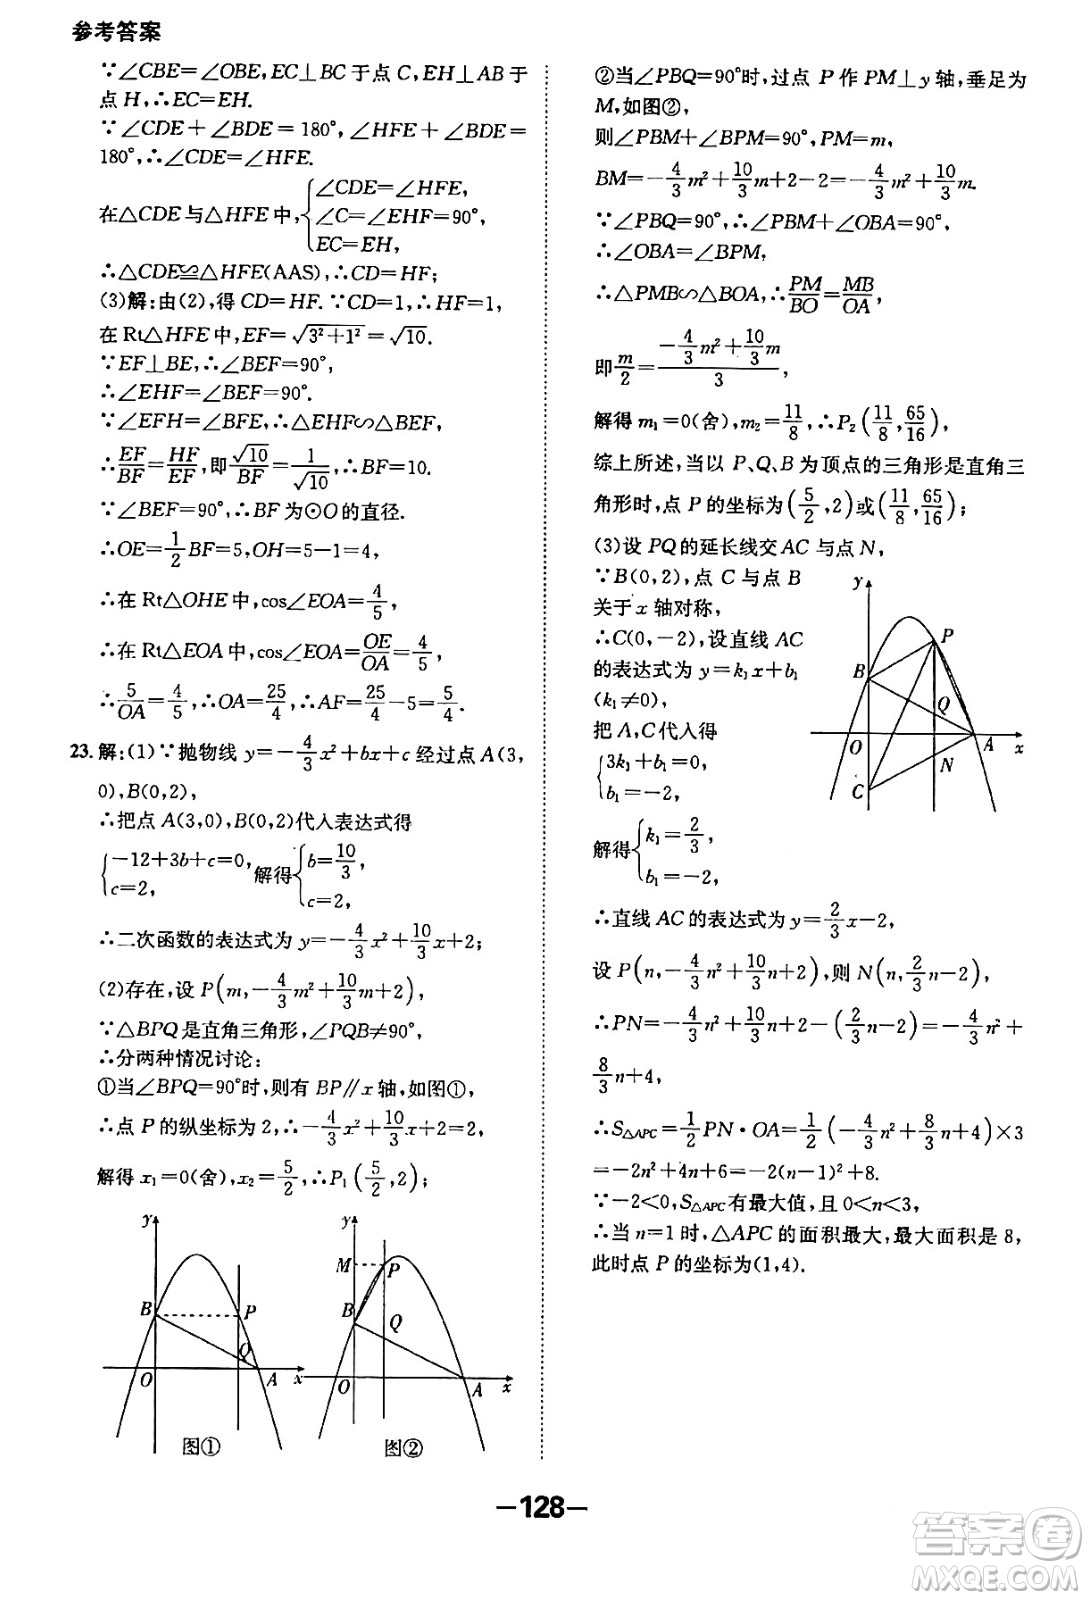 参考答案
∵∠CBE=∠OBE,EC⊥BC于点C,EH⊥AB于
点H,∴EC=EH.
∵∠CDE+∠BDE=180°,∠HFE+∠BFE=
180°,∴∠CDE=∠HFE.
在△CDE与△HFE中,{∠CDE=∠HFE,
∠C=∠EHF=90°,
EC=EH,
∴△CDE≌△HFE(AAS),∴CD=HF;
(3)解:由(2),得CD=HF.∵CD=1,∴HF=1,
在Rt△HFE中,EF=√(3²+1²)=√10.
∵EF⊥BE,∴∠BEF=90°.
∴∠EHF=∠BEF=90°.
∵∠EFH=∠BFE,∴△EHF∽△BEF,
∴EF/BF=HF/EF,即√10/BF=1/√10,∴BF=10.
∵∠BEF=90°,∴BF为⊙O的直径.
∴OE=1/2BF=5,OH=5-1=4,
∴在Rt△OHE中,cos∠EOA=4/5,
∴在Rt△EOA中,cos∠EOA=OE/OA=4/5,
∴5/OA=4/5,∴OA=25/4,∴AF=25/4-5=5/4.
23.解:(1)∵抛物线y=-4/3x²+bx+c经过点A(3,
0),B(0,2),
∴把点A(3,0),B(0,2)代入表达式得
{-12+3b+c=0,
c=2,
解得{b=10/3,
c=2,
∴二次函数的表达式为y=-4/3x²+10/3x+2;
(2)存在,设P(m,-4/3m²+10/3m+2),
∵△BPQ是直角三角形,∠PQB≠90°,
∴分两种情况讨论:
①当∠BPQ=90°时,则有BP∥x轴,如图①,
∴点P的纵坐标为2,∴-4/3x²+10/3x+2=2,
解得x₁=0(舍),x₂=5/2,∴P₁(5/2,2);
y
B
P
Q
O
A
x
图①
y
M
P
B
Q
O
A
x
图②
②当∠PBQ=90°时,过点P作PM⊥y轴,垂足为
M,如图②,
则∠PBM+∠BPM=90°,PM=m,
BM=-4/3m²+10/3m+2-2=-4/3m²+10/3m.
∵∠PBQ=90°,∴∠PBM+∠OBA=90°,
∴∠OBA=∠BPM,
∴△PMB∽△BOA,∴PM/BO=MB/OA,
即m/2=(-4/3m²+10/3m)/3,
解得m₁=0(舍),m₂=11/8,∴P₂(11/8,65/16),
综上所述,当以P、Q、B为顶点的三角形是直角三
角形时,点P的坐标为(5/2,2)或(11/8,65/16);
(3)设PQ的延长线交AC与点N,
∵B(0,2),点C与点B
关于x轴对称,
∴C(0,-2),设直线AC
的表达式为y=k₁x+b₁
(k₁≠0),
把A,C代入得
{3k₁+b₁=0,
b₁=-2,
解得{k₁=2/3,
b₁=-2,
y
P
B
Q
O
A
x
N
C
∴直线AC的表达式为y=2/3x-2,
设P(n,-4/3n²+10/3n+2),则N(n,2/3n-2),
∴PN=-4/3n²+10/3n+2-(2/3n-2)=-4/3n²+
8/3n+4,
∴S△APC=1/2PN·OA=1/2(-4/3n²+8/3n+4)×3
=-2n²+4n+6=-2(n-1)²+8.
∵-2<0,S△APC有最大值,且0<n<3,
∴当n=1时,△APC的面积最大,最大面积是8,
此时点P的坐标为(1,4).
-128-
答案圈
MXQE.COM